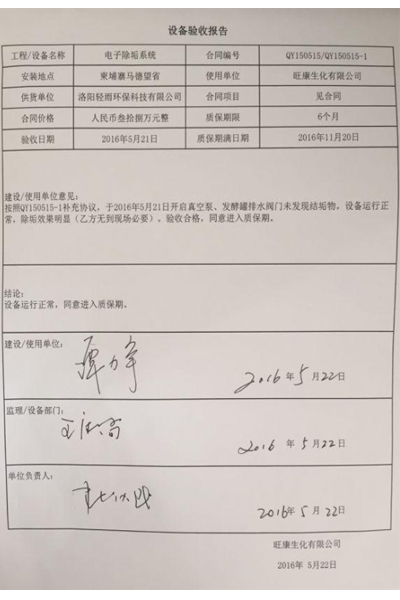 设备验收报告
工程/设备名称 电子除垢系统 合同编号 QY150515/QY150515-1
安装地点 柬埔寨马德望省 使用单位 旺康生化有限公司
供货单位 洛阳轻雨环保科技有限公司 合同项目 见合同
合同价格 人民币叁拾捌万元整 质保期限 6个月
验收日期 2016年5月21日 质保期满日期 2016年11月20日
建设/使用单位意见:
按照QY150515-1补充协议,于2016年5月21日开启真空泵、发酵罐排水阀门未发现结垢物,设备运行正
常,除垢效果明显(乙方无到现场必要)。验收合格,同意进入质保期。
结论:
设备运行正常,同意进入质保期。
建设/使用单位:
2016 年 5 月 22 日
监理/设备部门:
2016 年 5 月 22 日
单位负责人:
2016 年 5 月 22 日
旺康生化有限公司
2016年 5月22日